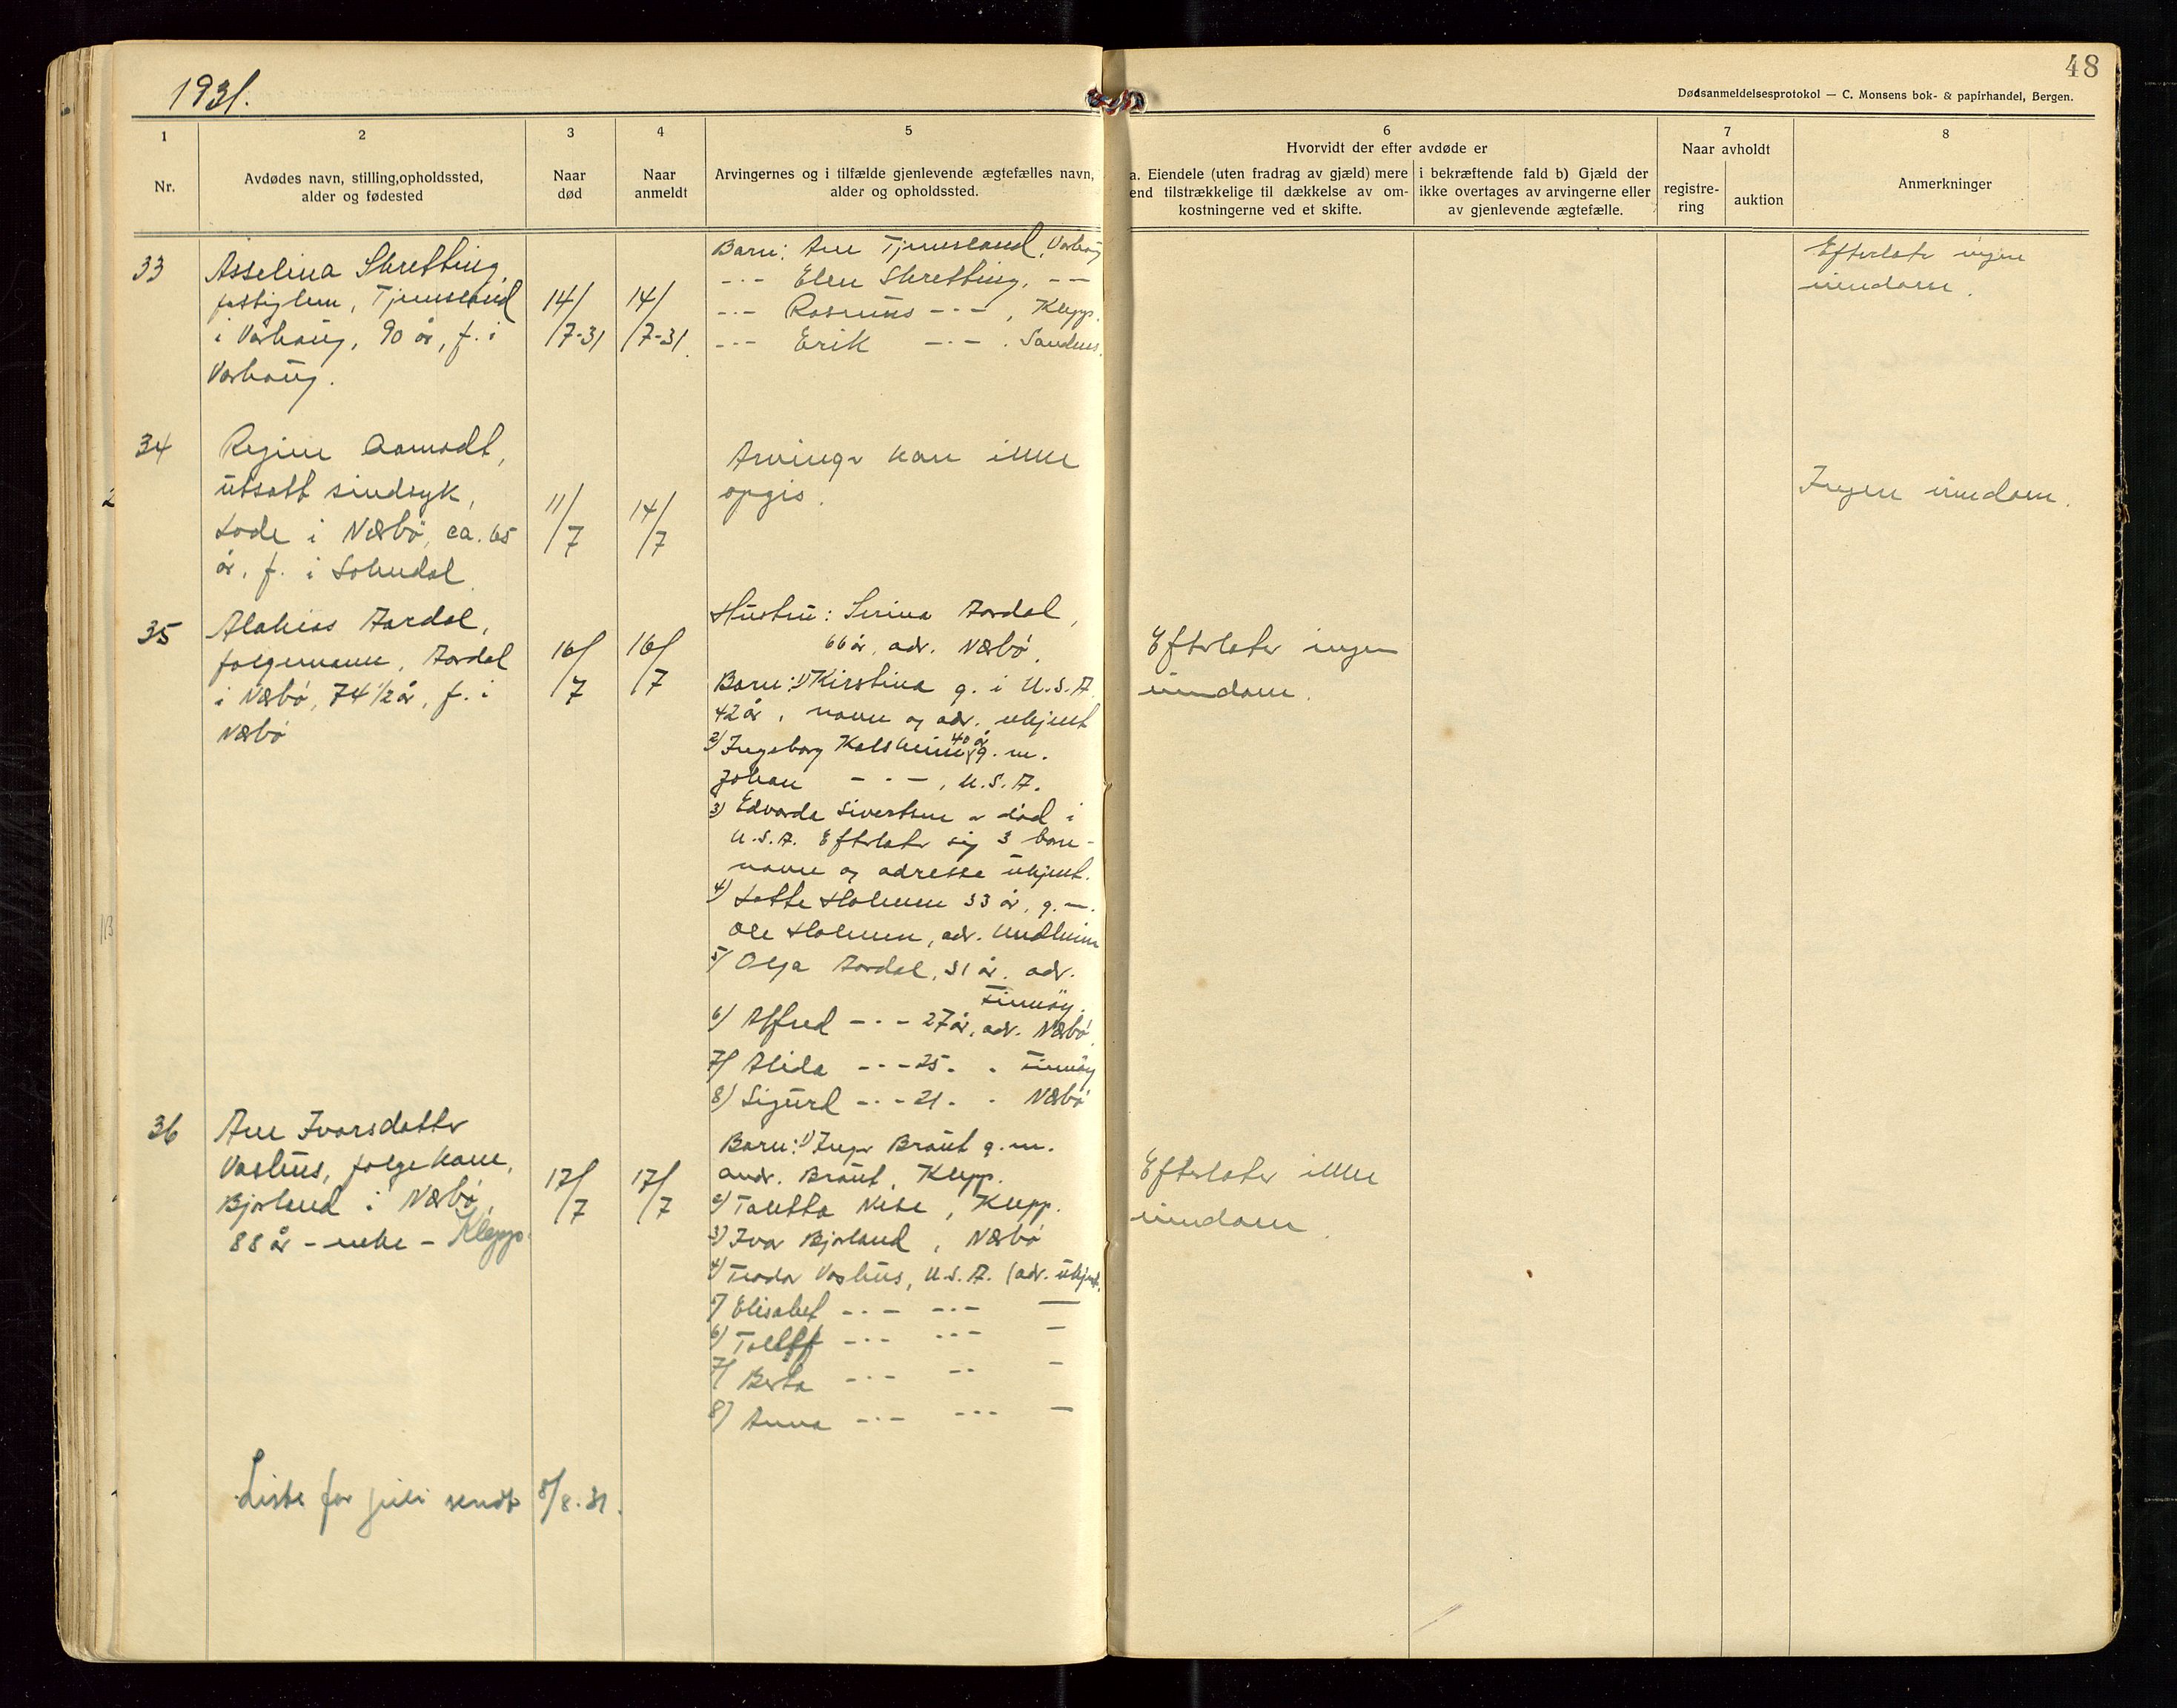 1931.
48
Dødsanmeldelsesprotokol — C. Monsens bok- & papirhandel, Bergen.
1
Nr.
2
Avdødes navn, stilling, opholdssted,
alder og fødested
3
Naar
død
4
Naar
anmeldt
5
Arvingernes og i tilfælde gjenlevende ægtefælles navn,
alder og opholdssted.
6
Hvorvidt der efter avdøde er
a. Eiendele (uten fradrag av gjæld) mere
end tilstrækkelige til dækkelse av om-
kostningerne ved et skifte.
i bekræftende fald b) Gjæld der
ikke overtages av arvingerne eller
av gjenlevende ægtefælle.
7
Naar avholdt
registre-
ring
auktion
8
Anmerkninger
33
Asselina Skretting,
fattiglem, Tjemsland
i Varhaug, 90 år, f. i
Varhaug.
14/
/7-31
14/
/7-31.
Barn: Ane Tjemsland, Varhaug
-·- Elen Skretting, -·-
-·- Rasmus -·-, Klepp.
-·- Erik -·-. Sandnes.
Efterlater ingen
eiendom.
34
Regine Aamodt,
utsatt sindsyk,
Lode i Nærbø, ca. 65
år, f. i Sokndal.
11/
/7
14/
/7
Arvinger kan ikke
opgis.
Ingen eiendom.
35
Aardal,
følgemann, Aardal
i Nærbø, 74 1/2 år, f. i
Nærbø
16/
/7
16/
/7
Hustru: Serina Aardal,
66 år, adr. Nærbø.
Barn: 1) Kirstina g. i U.S.A.
42 år, navn og adr. ukjent
2) Ingeborg 40 år g. m.
Johan -·-, U.S.A.
3) Edvarda Sivertsen er død i
U.S.A. Efterlater sig 3 barn -
navn og adresse ukjent.
4) Lotte Holmen 33 år, g. m.
Ole Holmen, adr. Undheim
5) Olga Aardal, 31 år, adr.
Finnøy.
6) Alfred -·- 27 år, adr. Nærbø.
7) Alida -·- 25 - - Finnøy
8) Sigurd -·- 21 - - Nærbø
Efterlater ingen
eiendom.
36
Ane Ivarsdatter
Vashus, følgekone,
Bjorland i Nærbø,
88 år - enke - Klepp.
17/
/7
17/
/7
Barn: 1) Inger Braut g. m.
andr. Braut, Klepp.
2) Taletta Nese, Klepp.
3) Ivar Bjorland, Nærbø
4) Teodor Vashus, U.S.A. (adr. ukjent.
5) Elisabet -·- -·- —
6) Tollef -·- -·- —
7) Berta -·- -·- —
8) Anna -·- -·- —
Efterlater ikke
eiendom.
Liste for juli sendt 8/8.31.